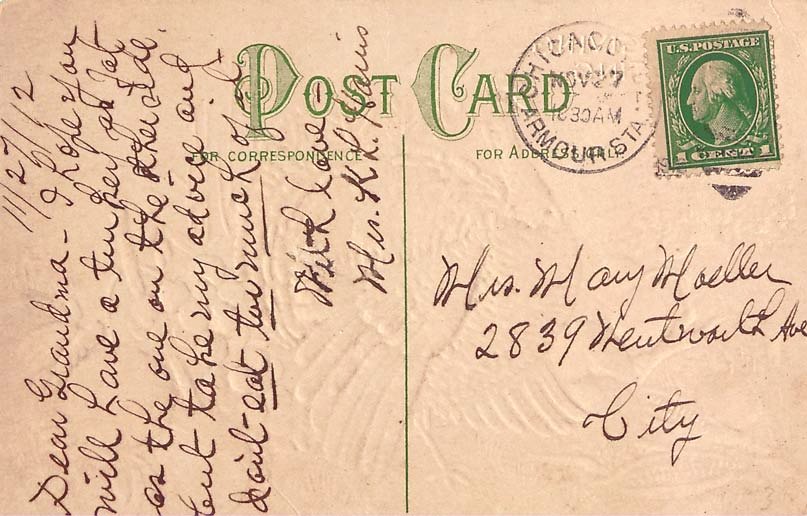 POST CARD
FOR CORRESPONDENCE
FOR ADDRESS ONLY
CHICAGO
NOV 27
1030AM
ARMOUR STA.
U.S. POSTAGE
1 CENT 1
11/27/12
Dear Grandma – I hope you
will have a turkey as fat
as the one on the other side.
but take my advice and
don't eat too much of it
With love
Mrs. K. R.
Mrs. Mary Moeller
2839 Wentworth Ave
City